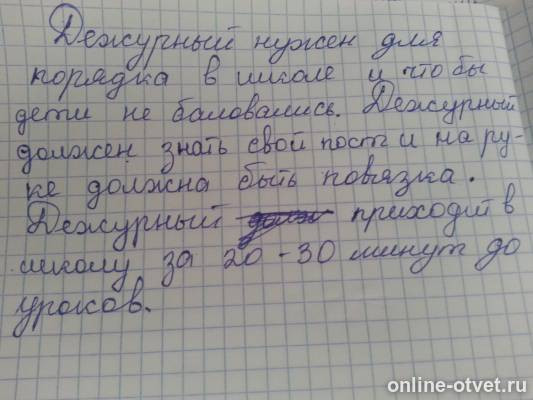 Дежурный нужен для
порядка в школе и что бы
дети не баловались. Дежурный
должен знать свой пост и на ру-
ке должна быть повязка.
Дежурный приходит в
школу за 20-30 минут до
уроков.
online-otvet.ru